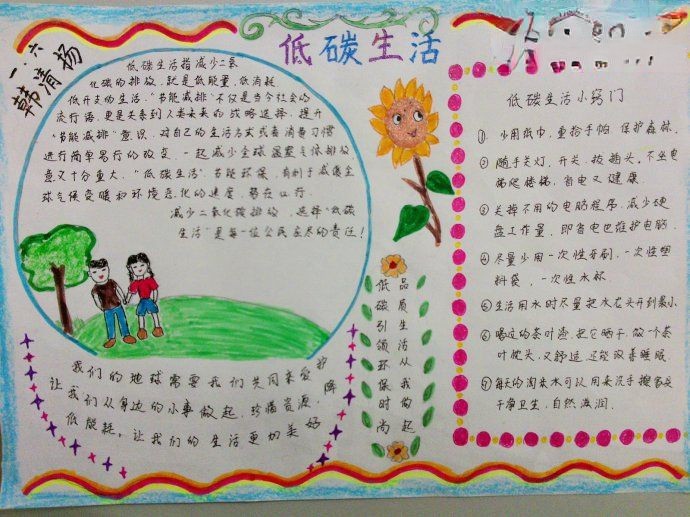 低碳生活
一.六
韩清扬
低碳生活指减少二氧
化碳的排放,就是低能量,低消耗
低开支的生活,"节能减排"不仅是当今社会的
流行语,更是关系到人类未来的战略选择,提升
"节能减排"意识,对自己的生活方式或者消费习惯
进行简单易行的改变,一起减少全球温室气体排放
意义十分重大,"低碳生活"节能环保,有利于减缓全
球气候变暖和环境恶化的速度,势在必行.
减少二氧化碳排放,选择"低碳
生活"是每一位公民应尽的责任!
我们的地球需要我们共同来爱护
让我们从身边的小事做起,珍惜资源,降
低能耗,让我们的生活更加美好
低碳引领环保时尚
品质生活从我做起
低碳生活小窍门
① 少用纸巾,重拾手帕,保护森林.
② 随手关灯,开关,拔插头,不坐电
梯爬楼梯,省电又健康.
③ 关掉不用的电脑程序,减少硬
盘工作量,即省电也维护电脑.
④ 尽量少用一次性牙刷,一次性塑
料袋,一次性水杯.
⑤ 生活用水时尽量把水龙头开到最小.
⑥ 喝过的茶叶渣,把它晒干,做一个茶
叶枕头,又舒适,还能改善睡眠.
⑦ 每天的淘米水可以用来洗手擦家具
干净卫生,自然滋润.